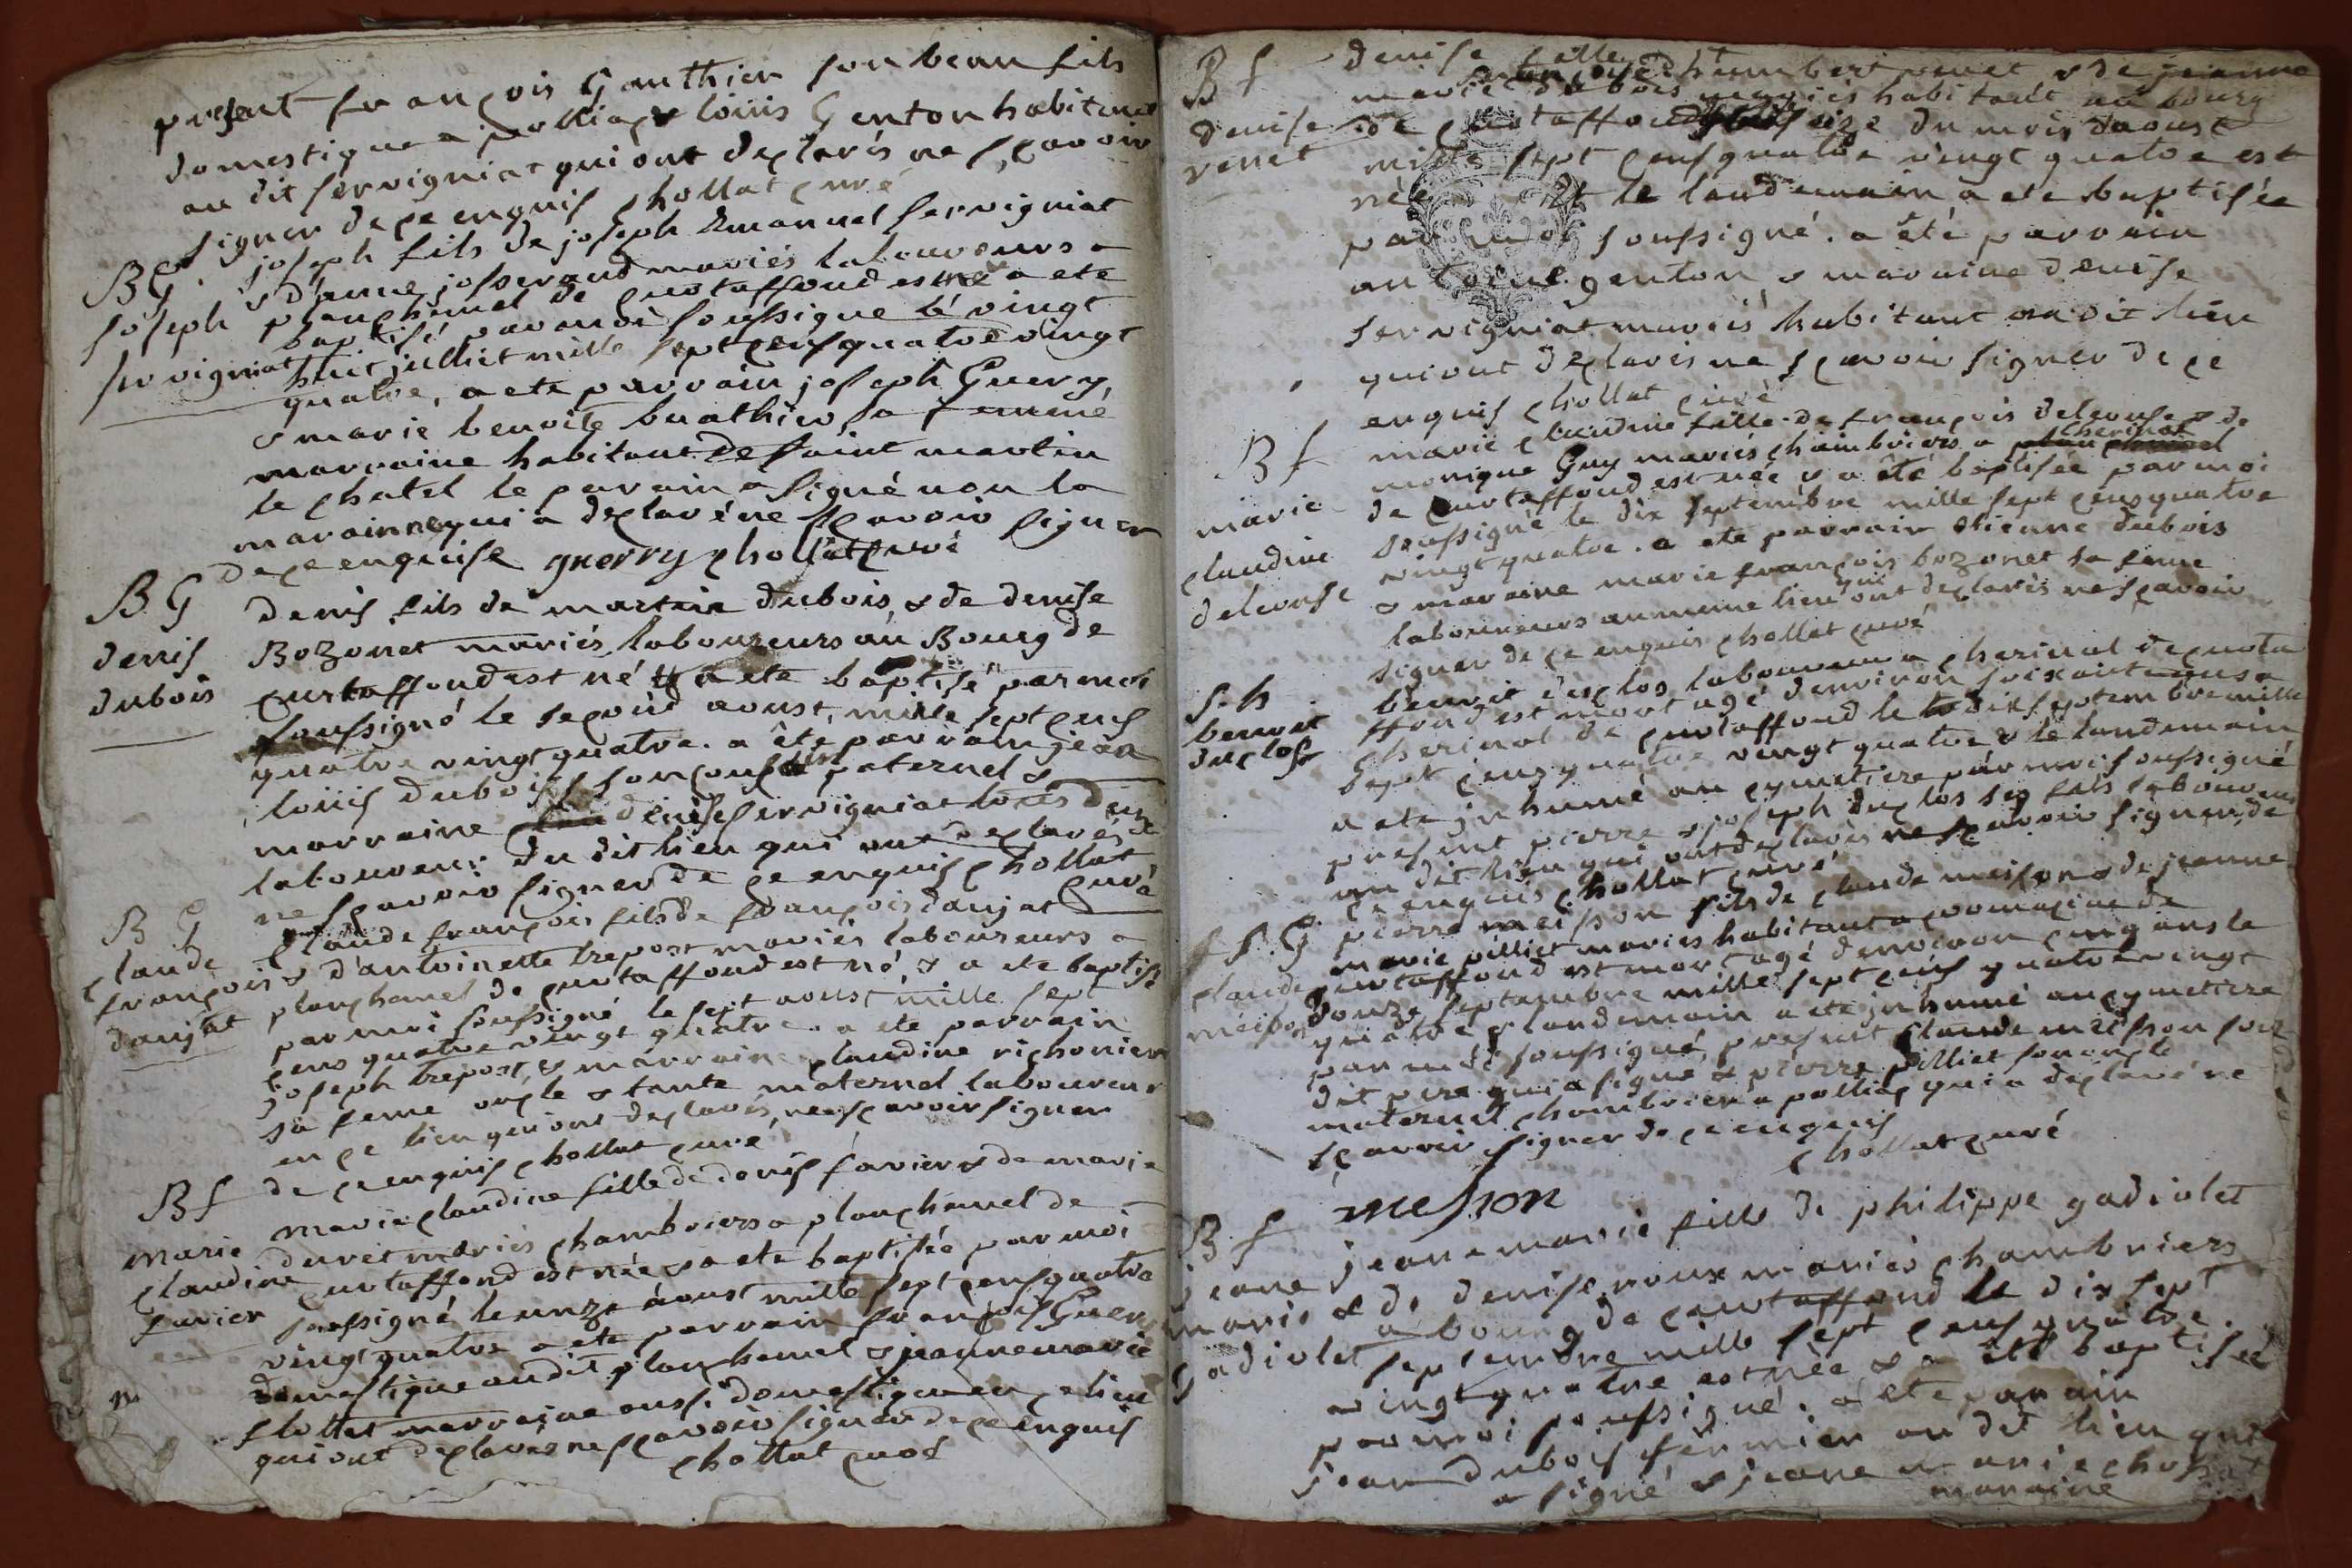 present françois Gauthier son beau fils
domestique a polliaz & loüis Genton habitant
au dit servigniat qui ont declarés ne scavoir
signer de ce enquis chollat curé
BG. joseph fils de joseph Emanuel servigniat
& d'anne josserand mariés laboureurs a
joseph planchanel de curtaffond est né a ete
servigniat baptisé par moi soussigné le vingt
huit julliet mille sept cens quatre vingt
quatre, a ete parrain joseph Guery,
& marie benoite buathier, sa femme
marraine habitant de saint martin
le chatel le parain a signé non la
marainne qui a declaré ne scavoir signer
de ce enquise guerry chollat curé
B.G denis fils de martin dubois, & de denise
denis Bozonet mariés, laboureurs au Bourg de
dubois curtaffond est né & a ete baptisé par moi
soussigné le second aoust, mille sept cens
quatre vingt quatre. a été parrain jean
loüis dubois son paternel &
marraine denise servigniat tous deux
laboureurs du dit lieu qui ont declarés de
ne scavoir signer de ce enquis chollat
curé
B G claude françois fils de françois danjat
claude & d'antoinette trepost mariés laboureurs a
françois planchanel de curtaffond est né, & a ete baptisé
danjat par moi soussigné le sept aoust mille sept
cens quatre vingt quatre. a ete parrain
joseph trepost, & marraine claudine richonier
sa feme oncle & tante maternel laboureur
en ce lieu qui ont declarés, ne scavoir signer
de ce enquis chollat curé
Bf marie claudine fille de denis favier & de marie
marie duret mariés chambriers a planchanel de
claudine curtaffond est née & a ete baptisée par moi
favier soussigné le unze aoust mille sept cens quatre
vingt quatre a ete parrain françois Guery
domestique au dit planchanel & jeanne marie
flottet marraine aussi domestique en ce lieu
qui ont declarés ne scavoir signer de ce enquis
chollat curé
B f denise fille humbert venet & de jeanne
marie dubois mariés habitant au bourg
denise de curtaffond seize du mois d'aoust
venet mille sept cens quatre vingt quatre est
née & le landemain a ete baptisée
par moi soussigné. a été parrain
antoine genton & maraine denise
servigniat mariés habitant au dit lieu
qui ont declarés ne scavoir signer de ce
enquis chollat curé
B f marie claudine fille de françois deleouse & de
monique Guy mariés chambriers a cherinal
marie de curtaffond est née & a été baptisée par moi
claudine soussigné le dix septembre mille sept cens quatre
deleouse vingt quatre. a ete parrain etienne dubois
& maraine marie françois bozonet sa feme
laboureurs au meme lieu qui ont declarés ne scavoir
signer de ce enquis chollat curé
S. h benoit duclos laboureur a cherinal de curta
benoit ffond est mort agé d'environ soixante ans a
duclos cherinal de curtaffond le dix septembre mille
sept cens quatre vingt quatre & le landemain
a ete inhumé au cymetiere par moi soussigné
present pierre & joseph duclos ses fils laboureurs
au dit lieu qui ont declarés ne scavoir signer de
ce enquis chollat curé
S. G pierre meisson fils de claude meisson & de jeanne
marie pilliet mariés habitant a cromacine de
claude curtaffond est mort agé d'environ cinq ans le
meison douze septembre mille sept cens quatre vingt
quatre & landemain a ete inhumé au cymetiere
par moi soussigné, present claude meisson son
dit pere qui a signé & pierre pilliet son oncle
maternel chambrier a polliaz qui a declaré ne
scavoir signer de ce enquis
chollat curé
messon
B. f jeane marie fille de philippe gadiolet
jeane & de denise roux mariés chambriers
marie a bourg de curtaffond le dix sept
gadiolet septembre mille sept cens quatre
vingt quatre est née & a été baptisée
par moi soussigné. a ete parain
jean dubois fermier au dit lieu qui
a signé & jeane marie chossat
maraine